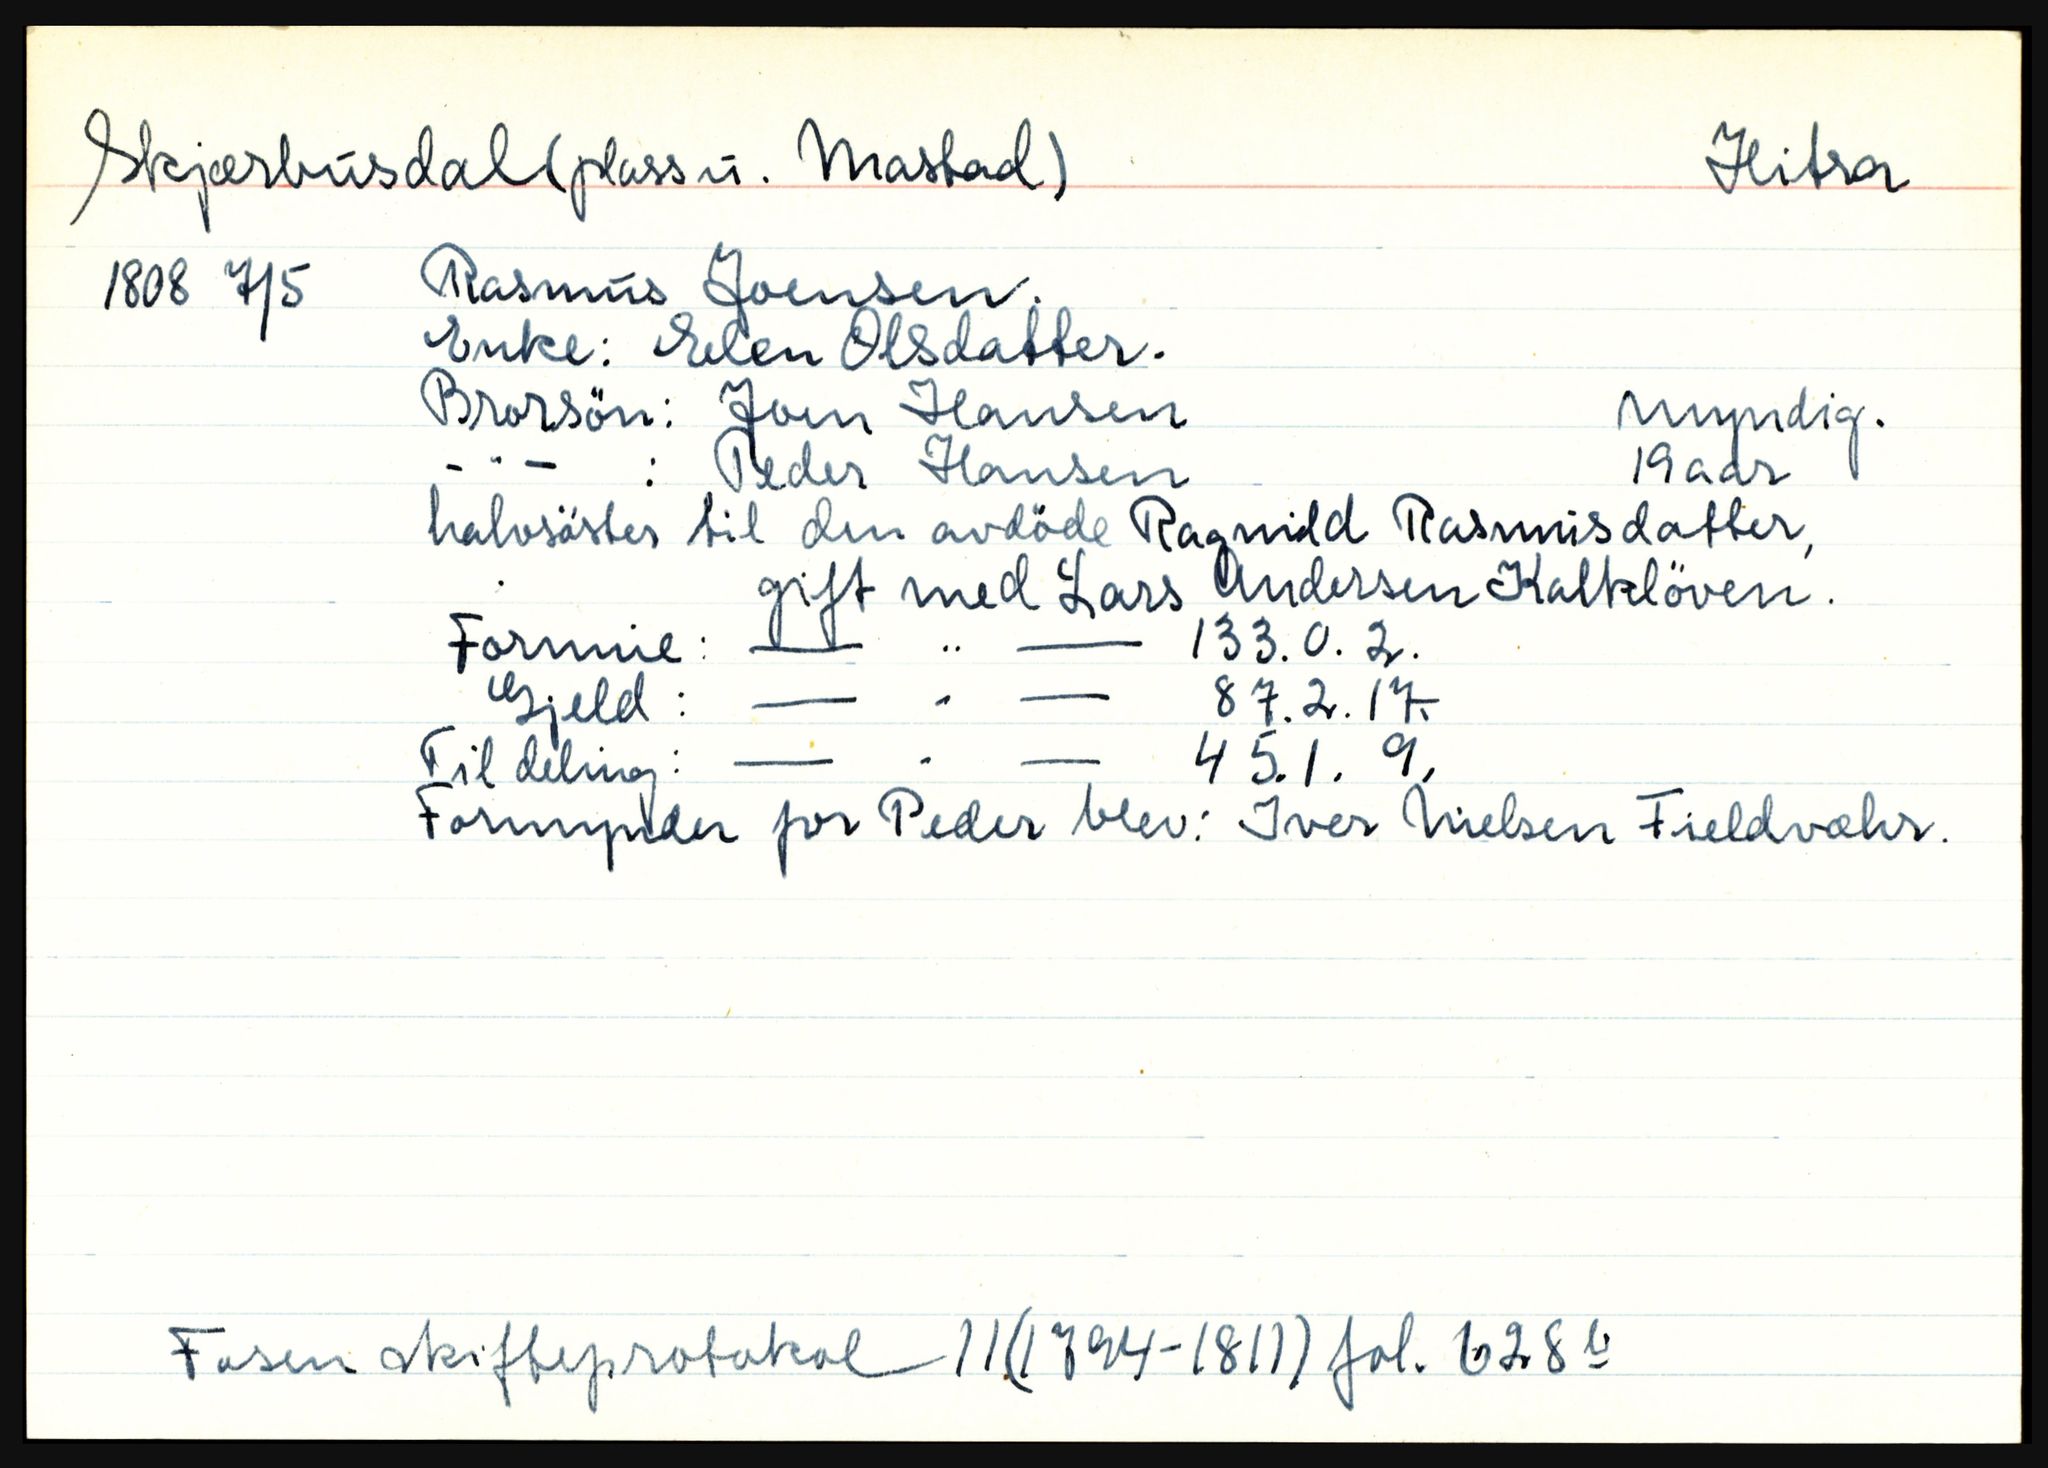 Skjærbusdal (plass u. Mastad) Hitra
1808 7/5 Rasmus Joensen.
Enke: Elen Olsdatter.
Brorsön: Joen Hansen myndig.
- " - : Peder Hansen 19 aar
halvsöster til den avdöde Ragnild Rasmusdatter,
gift med Lars Andersen Kalklöven.
Formue: — " — 133. 0. 2.
Gjeld: — " — 87. 2. 17.
Til deling: — " — 45. 1. 9.
Formynder for Peder blev: Iver Nielsen Fieldvæhr.
Fosen skifteprotokol 11 (1794-1811) fol. 628 b